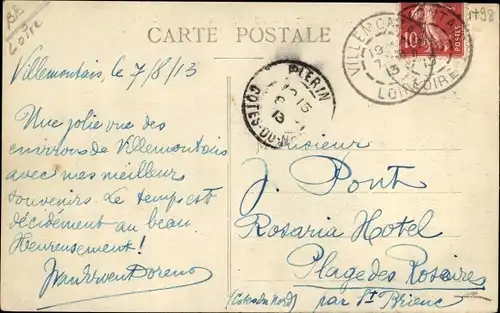 BE
Loire
1798
CARTE POSTALE
10
POSTES
VILLEMONTAIS
LOIRE
PLERIN
COTES-DU-NORD
Villemontais, le 7/8/13
Une jolie vue des
environs de Villemontais
avec mes meilleurs
souvenirs. Le temps est
décidément au beau
Heureusement!
Monsieur
J. Pont
Rosaria Hotel
Plage des Rosaires
(Cotes du Nord) par St Brieuc